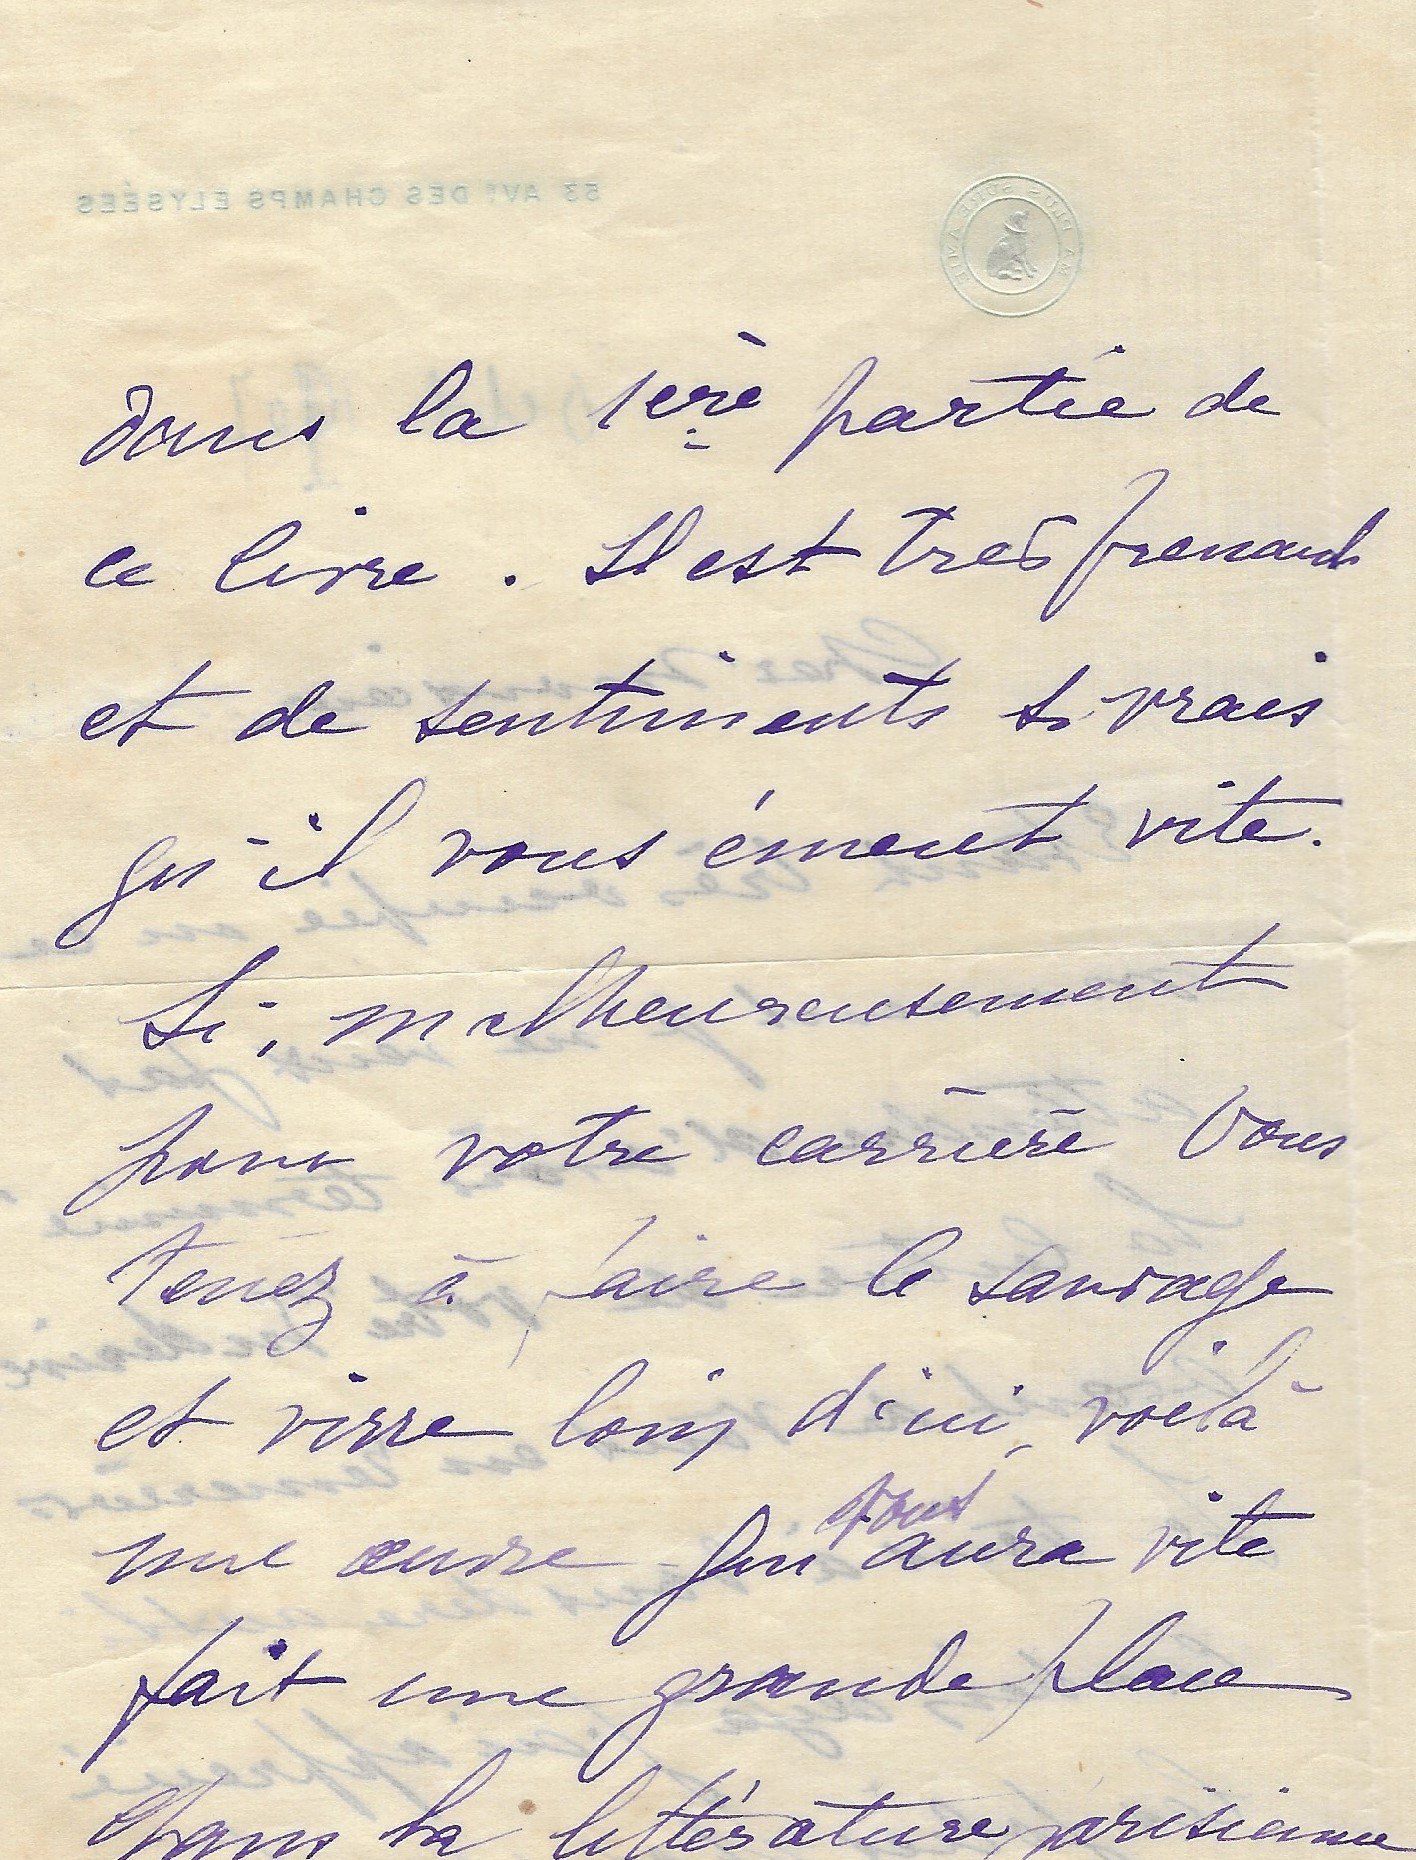 53 AVE DES CHAMPS ELYSÉES
MA PLUS SURE AMIE
dans la 1ère partie de
ce livre. Il est très prenant
et de sentiments si vrais
qu'il vous émeut vite.
Si, malheureusement
pour votre carrière vous
tenez à faire le sauvage
et vivre loin d'ici, voilà
une œuvre qui vous aura vite
fait une grande place
dans la littérature parisienne